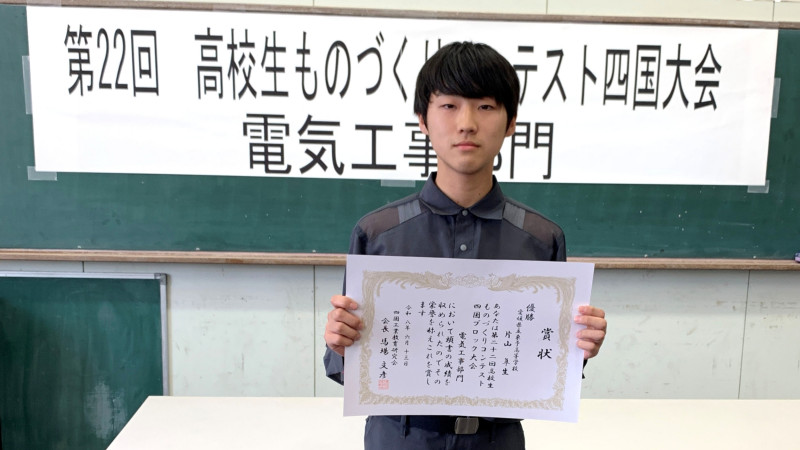 第22回 高校生ものづくりコンテスト四国大会
電気工事部門
賞状
優勝
片山
あなたは第二十二回高校生
ものづくりコンテスト
四国ブロック大会
電気工事部門
において頭書の成績を
収められたのでその
栄誉を称えこれを賞し
ます
令和八年六月十三日
四国工業教育研究会
会長 馬場